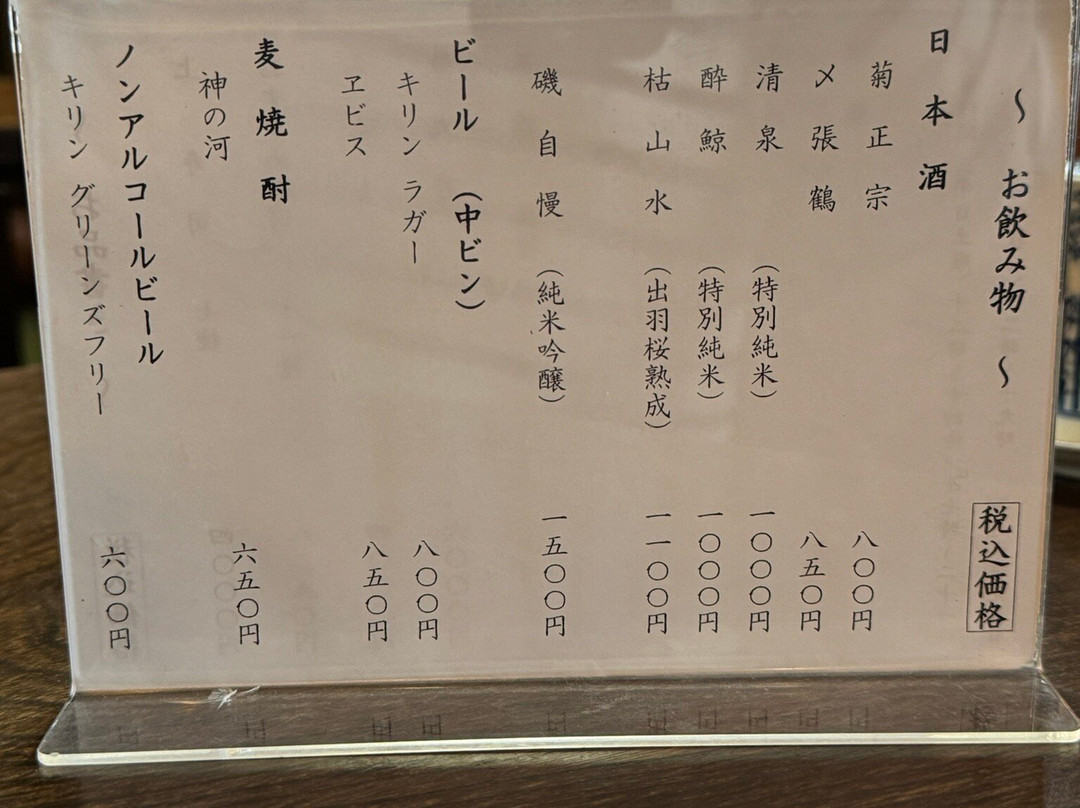 ～ お飲み物 ～ 税込価格
日本酒
菊正宗 八〇〇円
〆張鶴 八五〇円
清泉 （特別純米） 一〇〇〇円
酔鯨 （特別純米） 一〇〇〇円
枯山水 （出羽桜熟成） 一一〇〇円
磯自慢 （純米吟醸） 一五〇〇円
ビール （中ビン）
キリン ラガー 八〇〇円
ヱビス 八五〇円
麦焼酎
神の河 六五〇円
ノンアルコールビール
キリン グリーンズフリー 六〇〇円